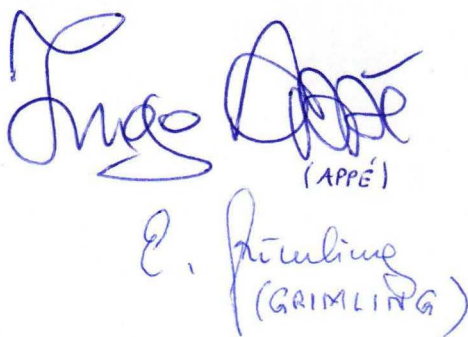 Ingo Appé
(APPÉ)
E. Grimling
(GRIMLING)